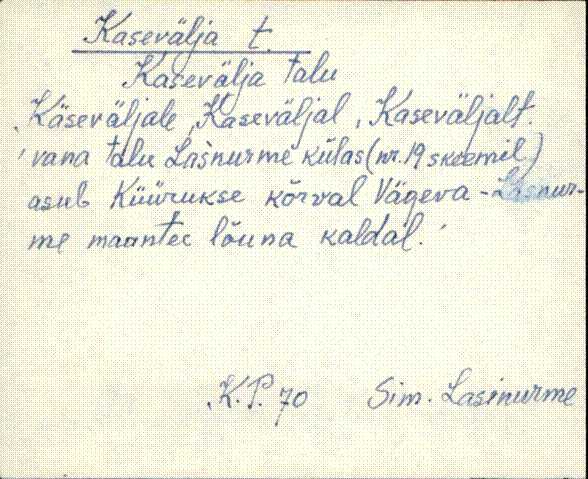 Kasevälja t.
Kasevälja talu
Kaseväljale, Kaseväljal, Kaseväljalt.
vana talu Lasnurme külas (nr. 19 skeemil)
asub Küürukse kõrval Vägeva-Lasnur-
me maantee lõuna kaldal.
K.P. 70 Sim. Lasinurme